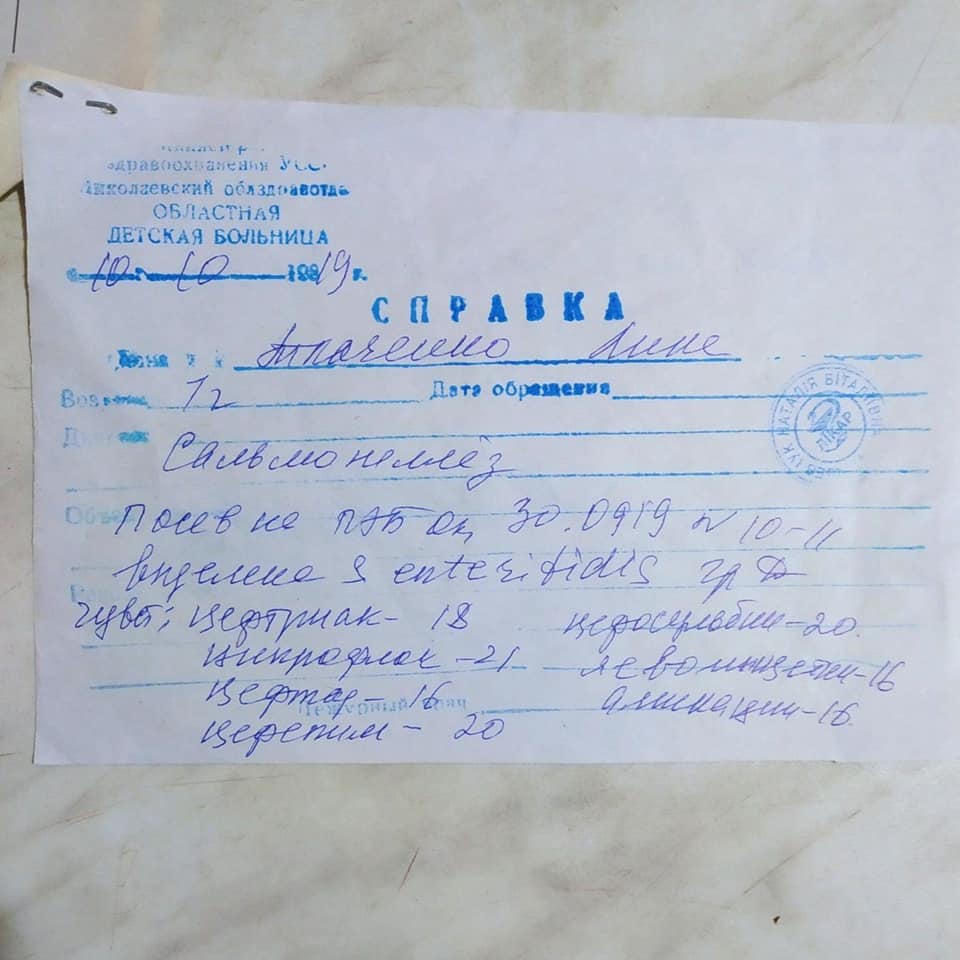 здравоохранения УССР
Николаевский облздравотдел
ОБЛАСТНАЯ
ДЕТСКАЯ БОЛЬНИЦА
10 10 19819 г.
СПРАВКА
Дана Ткаченко Анне
Возраст 1г Дата обращения
НАТАЛІЯ ВІТАЛІЇВНА
ЛІКАР
Сальмонеллёз
Посев на ПТБ от 30.0919 N 10-11
выделена S enteritidis гр Д
чувст: цефтриак - 18 цефосульбин - 20
ципрофлок - 21 левомицетин - 16
цефтаз - 16 амикацин - 16
Дежурный врач
цефепим - 20